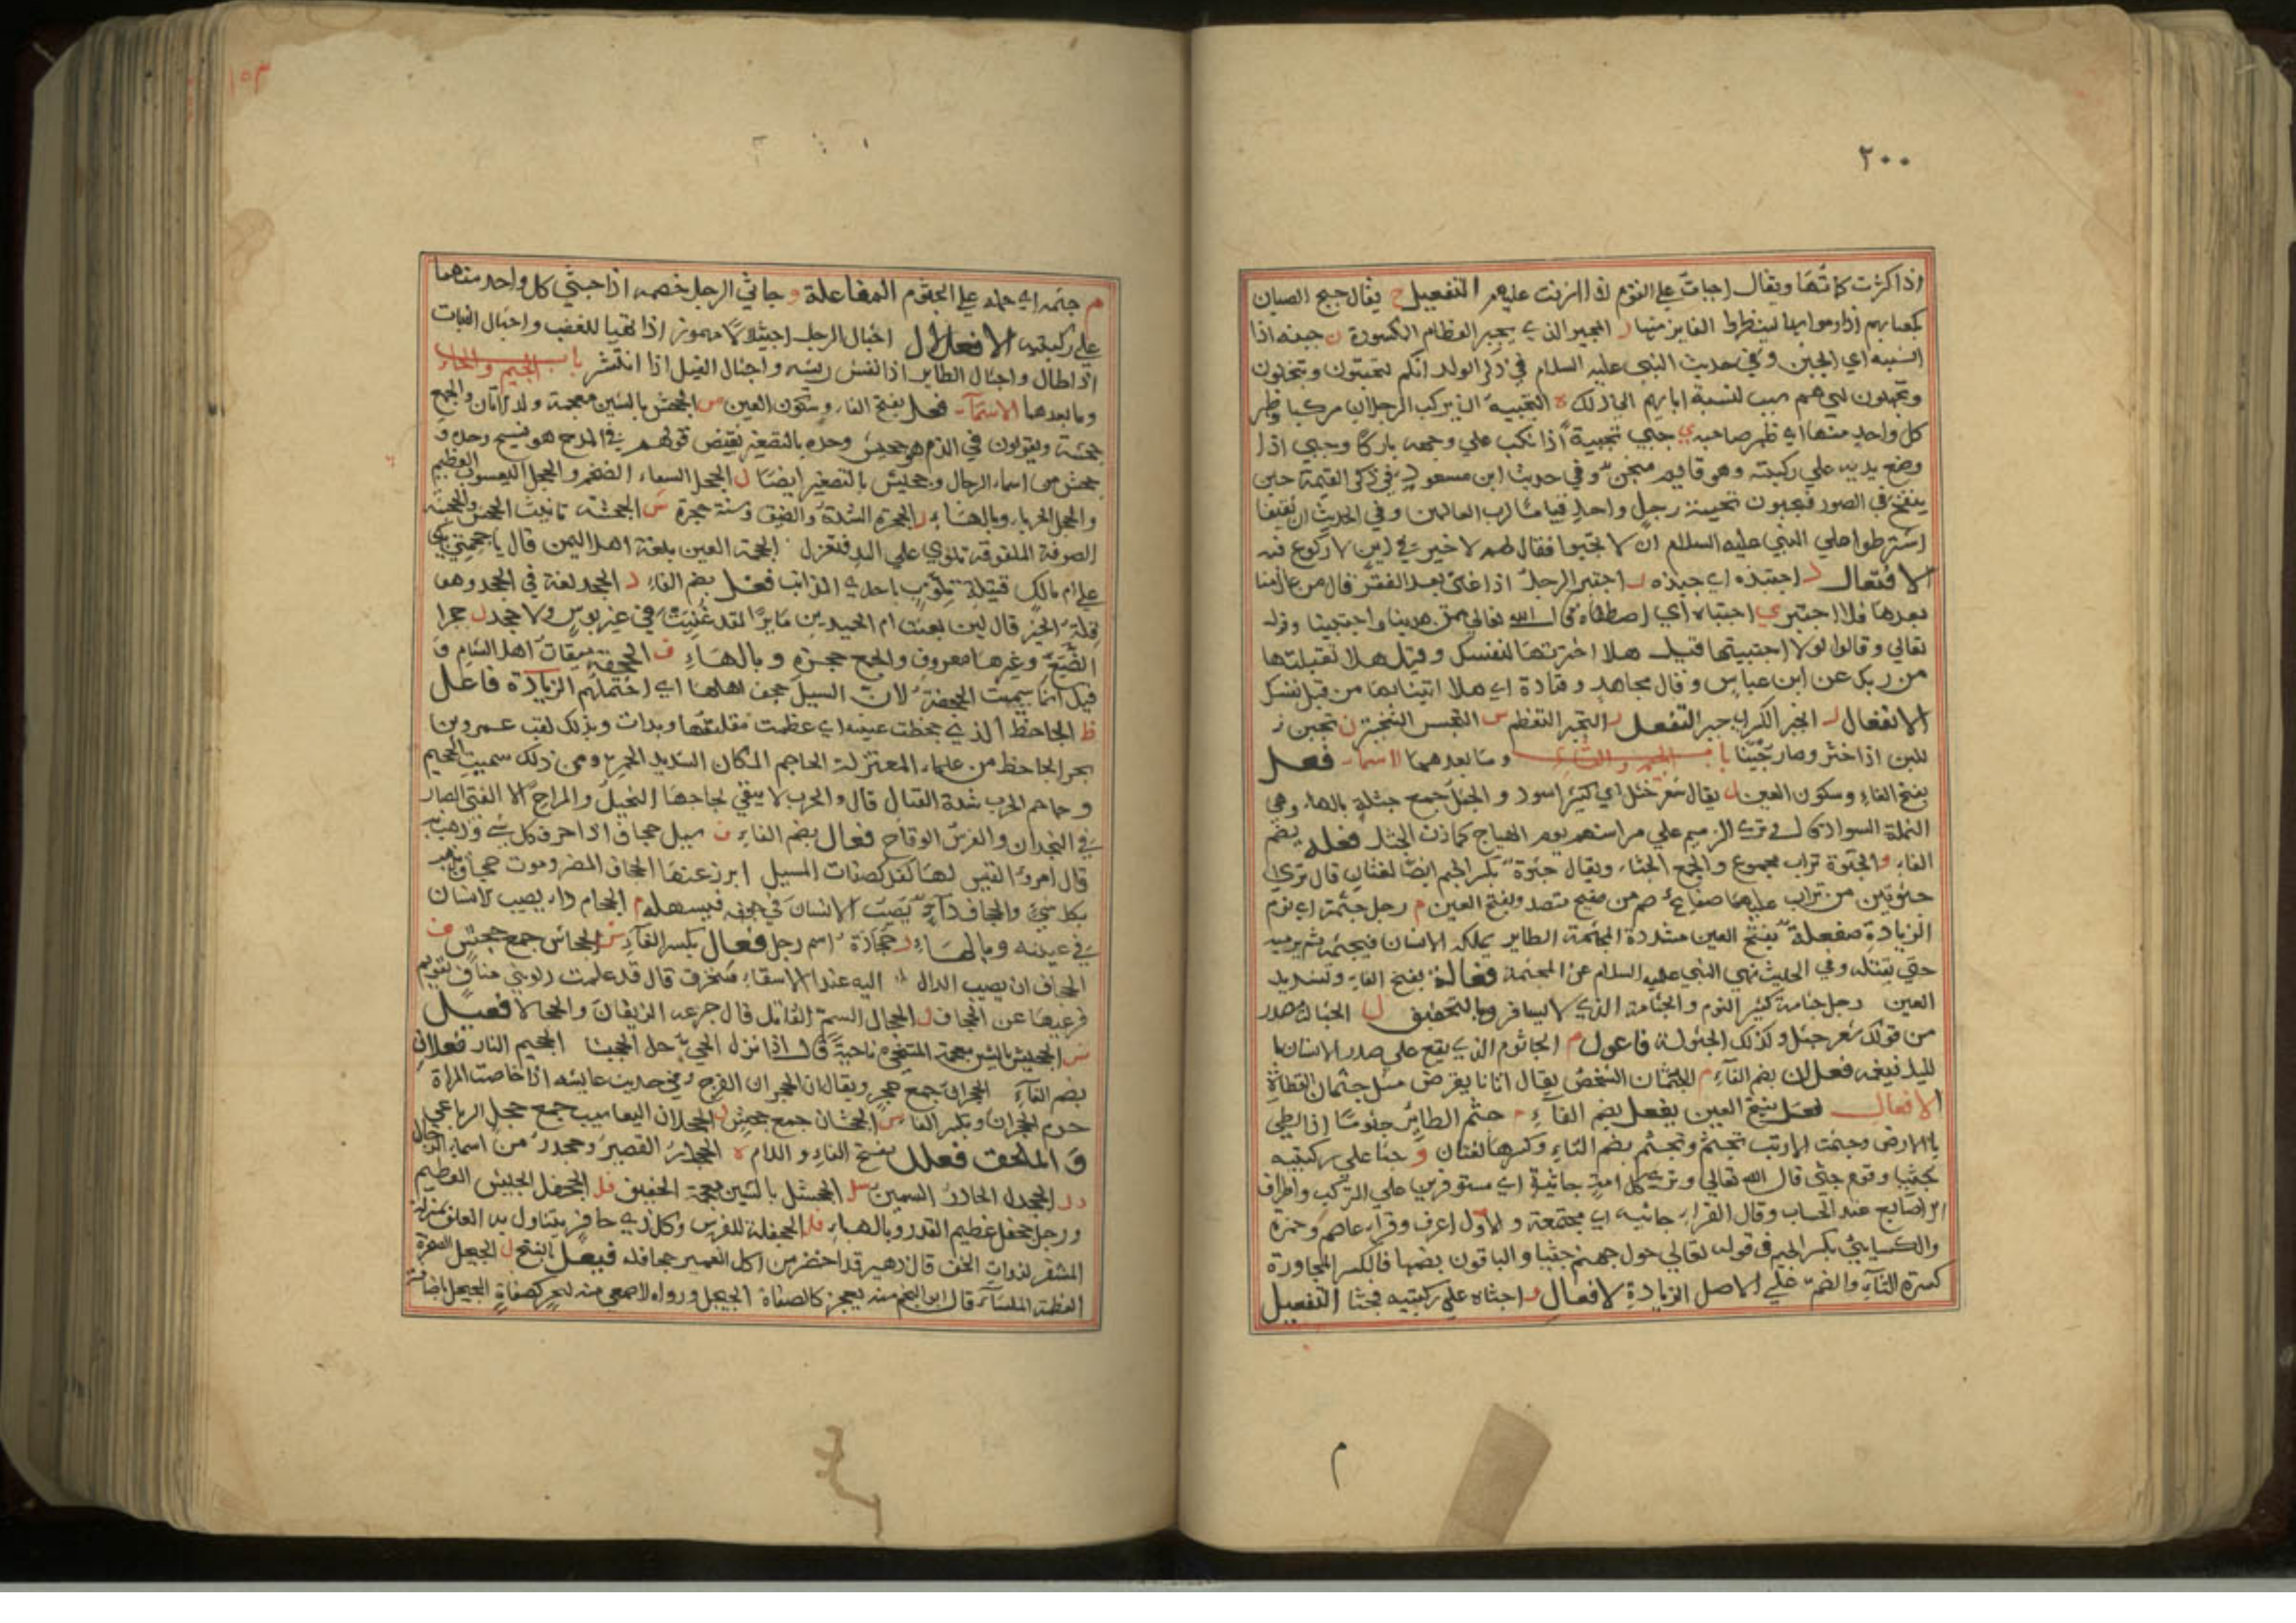 ٢٠٠
اذا كثرت كمأتها ويقال اجبات على القوم اذا اشرفت عليهم التفعيل ج يقال جبج الصبيان
بكعابهم اذا رموا بها لينظروا الفايز منها ر المجبر الذي يجبر العظام المكسورة ن جبنه اذا
نسبه اي الجبن وفي حديث النبي عليه السلام في ذكر الولد انكم لتجبنون وتبخلون
وتجهلون لي هم سبب لنسبة ابايهم الى ذلك ه التجبيه ان يركب الرجلان مركبا وظهر
كل واحد منهما الى ظهر صاحبه ي جبي تجبية اذا نكب على وجهه باركا وجبى اذا
وضع يديه على ركبته وهو قايم منحن وفي حديث ابن مسعود في ذكر القيمة حين
ينفخ في الصور فيجبون تجبية رجل واحد قياما لرب العالمين وفي الحديث ان ثقيفا
اشترطوا على النبي عليه السلام ان لا يجبوا فقال لهم لا خير في دين لا ركوع فيه
الافتعال ذ اجتبذه اي جبذه ر اجتبر الرجل اذا غنى بعد الفقر قال من عال منا
بعدها فلا اجتبر ي اجتباه اي اصطفاه قال الله تعالى ممن هدينا واجتبينا وقوله
تعالى وقالوا لولا اجتبيتها قيل هلا اخترتها لنفسك وقيل هلا تقبلتها
من ربك عن ابن عباس وقال مجاهد وقتادة اي هلا اتيتنا بها من قبل نفسك
الانفعال ر انجبر الكسر اي جبر التفعل ر التجبر التعظم س التجبس التبختر ن تجبن
للبن اذا خثر وصار جبنا باب الجيم والثاء وما بعدهما الاسماء فعل
بفتح الفاء وسكون العين ل يقال شعر جثل اي كثير اسود والجثل جمع جثلة بالهاء وهي
النملة السوداء قال وترى الزميم على مراسنهم يوم الهياج كمازن الجثل فعلة بضم
الفاء و الجثوة تراب مجموع والجمع الجثاء ويقال جثوة بكسر الجيم ايضا لغتان قال ترى
جثوتين من تراب عليهما صفايح صم من صفيح منضد وبفتح العين م رجل جثمة اي نؤم
الزيادة مفعلة بفتح العين مشددة المجثمة الطاير يملكه الانسان فيجثمه ثم يرميه
حتى يقتله وفي الحديث نهى النبي عليه السلام عن المجثمة فعالة بفتح الفاء وتشديد
العين رجل جثامة كثير النوم والجثامة الذي لا يسافر وبالتخفيف ل الجثالة مصدر
من قولك شعر جثل وكذلك الجثولة فاعول م الجاثوم الذي يقع على صدر الانسان با
لليل فيغمه فعلان بضم الفاء م الجثمان الشخص يقال اتانا بقرص مثل جثمان القطاة
الافعال فعل بفتح العين يفعل بضم الفاء م جثم الطاير جثوما اذا لطي
بالارض وجثمت الارنب تجثم وتجثم بضم الثاء وكسرها لغتان و جثا على ركبتيه
يجثوا وقوم جثي قال الله تعالى وترى كل امة جاثية اي مستوفزين على الركب واطراف
الاصابع عند الحساب وقال الفراء جاثية اي مجتمعة والاول اعرف وقراء عاصم وحمزة
والكسايئ بكسر الجيم في قوله تعالى حول جهنم جثيا والباقون بضمها فالكسر لمجاورة
كسرة الثاء والضم على الاصل الزيادة الافعال و اجثاه على ركبتيه فجثا التفعيل
م
١٥٣
م جثمه اي حمله على الجثوم المفاعلة و جاثي الرجل خصمه اذا جثي كل واحد منهما
على ركبتيه الافعلال اجثال الرجل اجثيلالا مهموز اذا تهيا للغضب واجثال النبات
اذا طال واجثال الطاير اذا نفش ريشه واجثال الفيل اذا انتشر باب الجيم والحاء
وما بعدهما الاسماء فعل بفتح الفاء وسكون العين س الجحش بالشين معجمة ولد الاتان والجمع
جحشة ويقولون في الذم هو جحيش وحده بالتصغير نقيض قولهم في المدح هو نسيج وحده و
جحش من اسماء الرجال وجحيش بالتصغير ايضا ل الجحل السقاء الضخم والجحل اليعسوب العظيم
والجحل الحرباء وبالهاء ر الجحرة الشدة والضيق وسنة جحرة س الجحشة تانيث الجحش والجحشة
الصوفة الملفوفة تلوى على اليد فتغزل الجحمة العين بلغة اهل اليمن قال يا جحمتي بكي
على ام مالك قتيلة قلوب باحدى الذوائب فعل بضم الفاء د الجحد لغة في الجحد وهو
قلة الخير قال لين بعثت ام الحميدين مايرا لقد غنيت في غير بوس ولا جحد ر جحرا
الضب وغيرها معروف والجمع جحرة وبالهاء ف الجحفة ميقات اهل الشام و
قيل انما سميت الجحفة لان السيل جحف اهلها اي احتملهم الزيادة فاعل
ظ الجاحظ الذي جحظت عينه اي عظمت مقلتها وبدات وبذلك لقب عمرو بن
بحر الجاحظ من علماء المعتزلة الجاحم المكان الشديد الحر ومن ذلك سميت الجحيم
وجاحم الحرب شدة القتال قال والحرب لا يبقى لجاحمها التخيل والمراح الا الفتى الصبار
في النجدات والفرس الوقاح فعال بضم الفاء ف سيل جحاف اذا جرف كل شئ وذهب به
قال امرؤ القيس لها كفل كصفات المسيل ابرز عنها الجحاف المضر وموت جحاف يذهب
بكل شئ والجحاف داء يصيب الانسان في جوفه فيسهله م الجحام داء يصيب الانسان
في عينيه وبالهاء د جحادة اسم رجل فعال بكسر الفاء س الجحاش جمع جحش ف
الجحاف ان يصيب الدلو اليه عند الاستقاء فتخرق قال قد علمت دلو بني مناف تقويم
فرغيها عن الجحاف ل الجحال السم القاتل قال جرعه الذيفان والجحالا فعيل
س الجحيش بالشين معجمة المتنحي ناحية قال اذا نزل الحي حل الجحيش الجحيم النار فعلان
بضم الفاء الجحران جمع جحر ويقال ان الجحران الفرج وفي حديث عايشه اذا حاضت المراة
حرم الجحران وبكسر الفاء س الجحشان جمع جحش ل الجحلان اليعاسيب جمع جحل الرباعي
و الملحق فعلل بفتح الفاء واللام ه الجحدر القصير وجحدر من اسماء الرجال
در الجحدل الحادر السمين سل الجحشل بالشين معجمة الخفيف فل الجحفل الجيش العظيم
ورجل جحفل عظيم القدر وبالهاء فل الجحفلة للفرس وكل ذي حافر يتناول به العلف بمنزلة
المشفر لذوات الخف قال زهير قد احضر من اكل الغمير جحافله فيعل بالفتح ل الجيحل الصخرة
العظيمة الملساء قال ابو النجم منه بعجز كالصفاة الجيحل ورواه الاصمعي منه بعجز كصفاة الجيحل باضافة